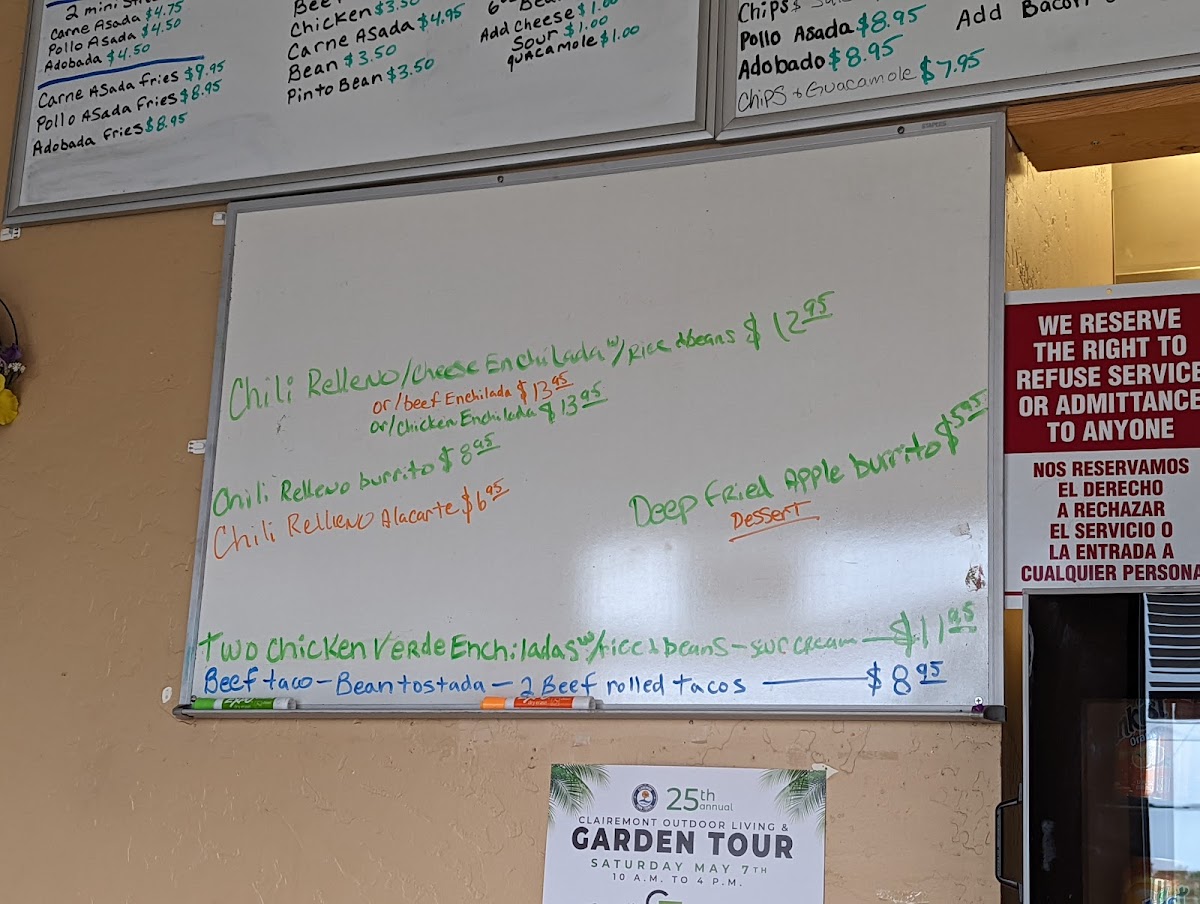 2 mini
Carne Asada $4.75
Pollo Asada $4.50
Adobada $4.50
Carne Asada Fries $9.95
Pollo Asada Fries $8.95
Adobada Fries $8.95
Chicken $3.50
Carne Asada $4.95
Bean $3.50
Pinto Bean $3.50
Add Cheese $1.00
Sour $1.00
guacamole $1.00
Chips
Pollo Asada $8.95
Adobado $8.95
Chips & Guacamole $7.95
Add Bacon
Chili Relleno/Cheese Enchilada w/Rice & beans $12.95
or/beef Enchilada $13.95
or/Chicken Enchilada $13.95
Chili Relleno burrito $8.95
Chili Rellieno Alacarte $6.95
Deep Fried Apple burrito $5.95
Dessert
Two Chicken Verde Enchiladas w/rice & beans - sur cream — $11.95
Beef taco - Bean tostada - 2 Beef rolled tacos — $8.95
WE RESERVE
THE RIGHT TO
REFUSE SERVICE
OR ADMITTANCE
TO ANYONE
NOS RESERVAMOS
EL DERECHO
A RECHAZAR
EL SERVICIO O
LA ENTRADA A
CUALQUIER PERSONA
25th annual
CLAIREMONT OUTDOOR LIVING &
GARDEN TOUR
SATURDAY MAY 7TH
10 A.M. TO 4 P.M.